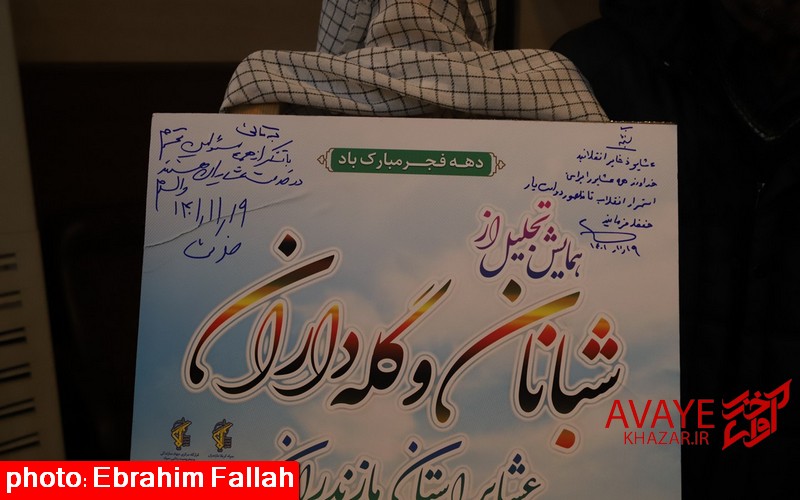 دهه فجر مبارک باد
بسمه تعالی
عشایر ذخایر انقلابند
خداوند همه عشایر را برای
استمرار انقلاب تا ظهور دولت یار
حفظ فرماید
۱۴۰۱/۱۱/۱۹
با تشکر از همه مسئولین محترم
والسلام
۱۴۰۱/۱۱/۱۹
همایش تجلیل از
شبانان و گله داران
عشایر استان مازندران
AVAYE
KHAZAR.IR
آوای خزر
photo: Ebrahim Fallah